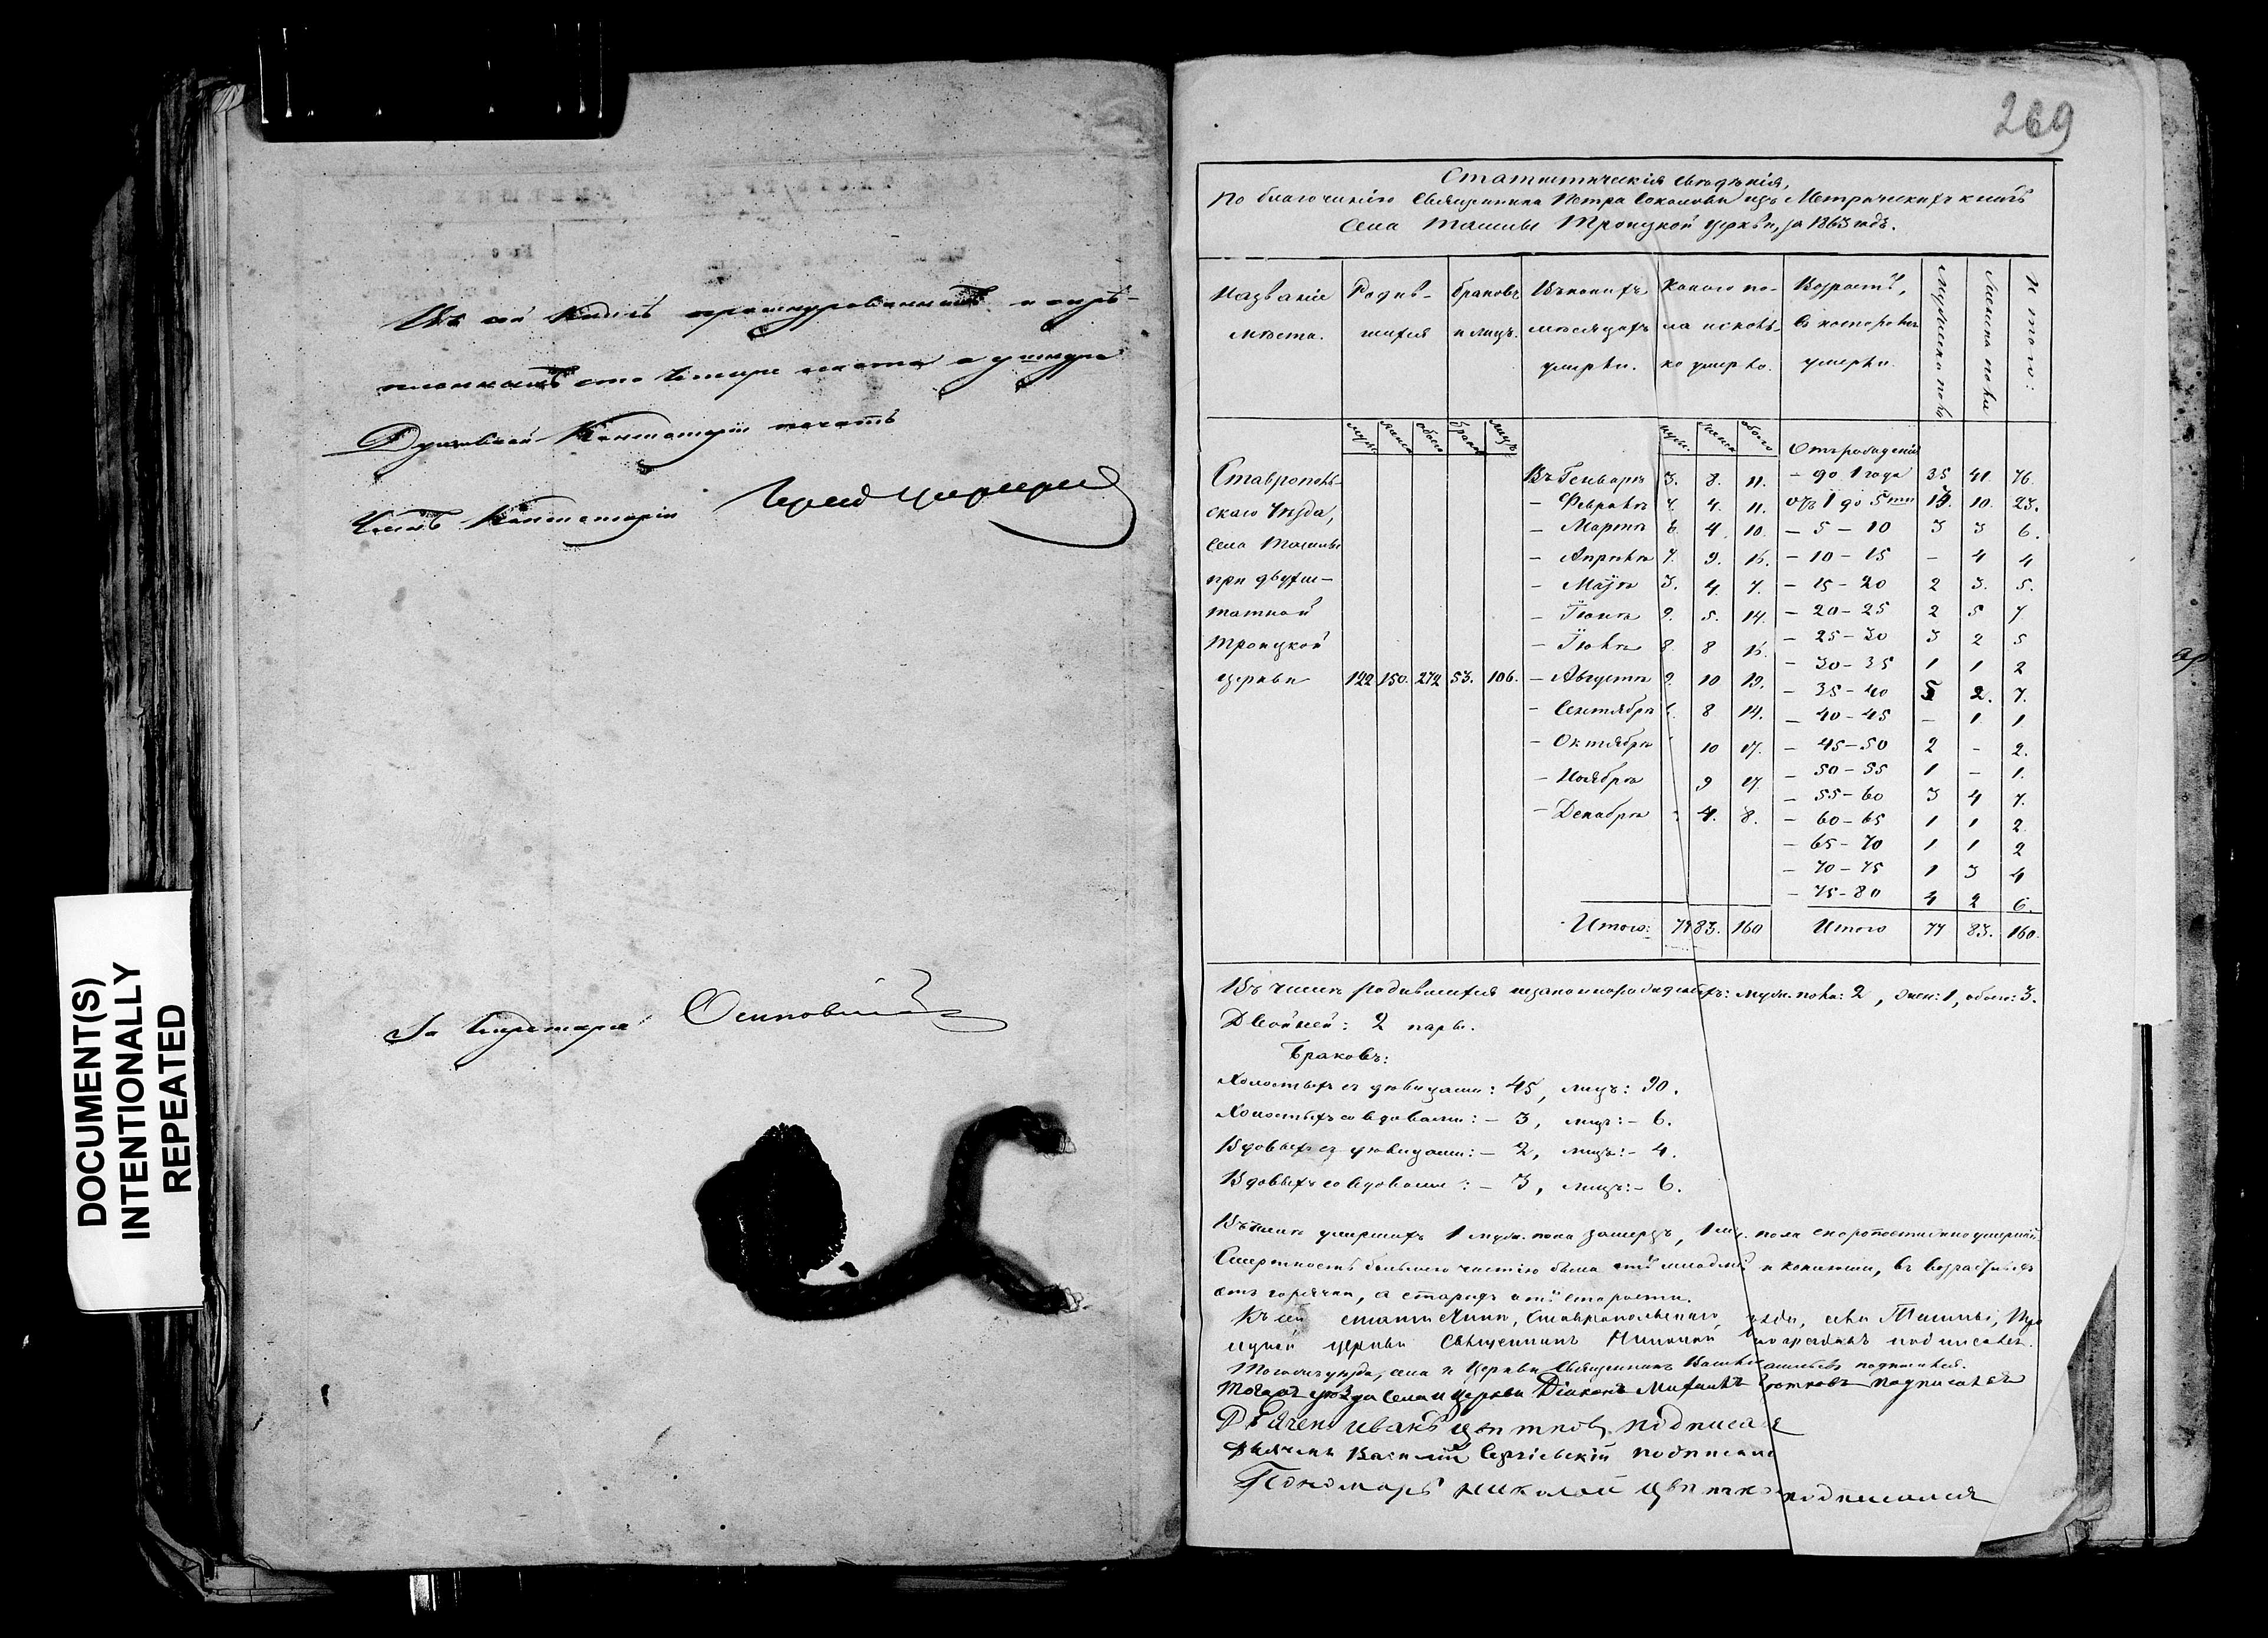 DOCUMENT(S)
INTENTIONALLY
REPEATED
Въ сей Книгѣ прошнурованныхъ и
сто Четыре листа а у шнура
Духовной Консисторіи печать
Членъ Консисторіи Іерей
За Секретаря
269
Статистическія свѣдѣнія,
По благочинію Священника Петра Соколова изъ Метрическихъ книгъ
села Ташлы Троицкой церкви, за 1863 годъ.
Названіе мѣста.
Родив-шихся
Браковъ и лицъ.
Въ какихъ мѣсяцахъ умерли.
Какого по-ла и сколь-ко умерло.
Возрастъ, въ которомъ умерли.
Мужеска полъ
Женска полъ
Итого:
муж. женск обоего брак. лицъ. муж. женск обоего
Ставрополь-
скаго Уѣзда,
села Ташлы
при двухш-
татной
Троицкой
церкви 122 150. 272 53. 106.
Въ Генварѣ 3. 8. 11.
- Февралѣ 7. 4. 11.
- Мартѣ 6. 4. 10.
- Апрѣлѣ 7. 9. 16.
- Маѣ 3. 4. 7.
- Іюнѣ 9. 5. 14.
- Іюлѣ 8. 8 16.
- Августѣ 9. 10 19.
- Сентябрѣ 8 14.
- Октябрѣ 10 17.
- Ноябрѣ 9 17.
- Декабрѣ 4. 8.
Итого: 77 83. 160
Отъ рожденія
- до 1 года 35 41. 76.
отъ 1 до 5ти 13. 10. 23.
- 5 - 10 3 3 6.
- 10 - 15 - 4 4
- 15 - 20 2 3. 5.
- 20 - 25 2 5 7
- 25 - 30 3 2 5
- 30 - 35 1 1 2
- 35 - 40 5 2. 7.
- 40 - 45 - 1 1
- 45 - 50 2 - 2.
- 50 - 55 1 - 1.
- 55 - 60 3 4 7.
- 60 - 65 1 1 2
- 65 - 70 1 1 2
- 70 - 75 1 3 4
- 75 - 80 4 2 6.
Итого 77 83. 160.
Въ числѣ родившихся незаконнорожденныхъ: муж. пола: 2, жен: 1, обоего: 3.
Двойней: 2 пары.
Браковъ:
Холостыхъ съ дѣвицами: 45, лицъ: 90.
Холостыхъ со вдовами: - 3, лицъ: - 6.
Вдовыхъ съ дѣвицами: - 2, лицъ: - 4.
Вдовыхъ со вдовами: - 3, лицъ: - 6.
Въ числѣ умершихъ 1 муж. пола замерзъ, 1 м. пола скоропостижно умершій.
Смертность большею частію была отъ младен и колотии, въ возрастныхъ
отъ горячки, а старыхъ отъ старости.
Къ сей статистикѣ, Ставропольскаго уѣзда, села Ташлы, Тро
ицкой церкви Священникъ Николай подписался.
Тогожъ уѣзда, села и Церкви Священникъ подписался.
Тогожъ уѣзда села и церкви Діаконъ Михаилъ подписался
Дьячекъ Иванъ Цвѣтковъ подписался
Дьячекъ Василій Сергіевскій подписался
Пономарь Николай Цвѣтковъ подписался